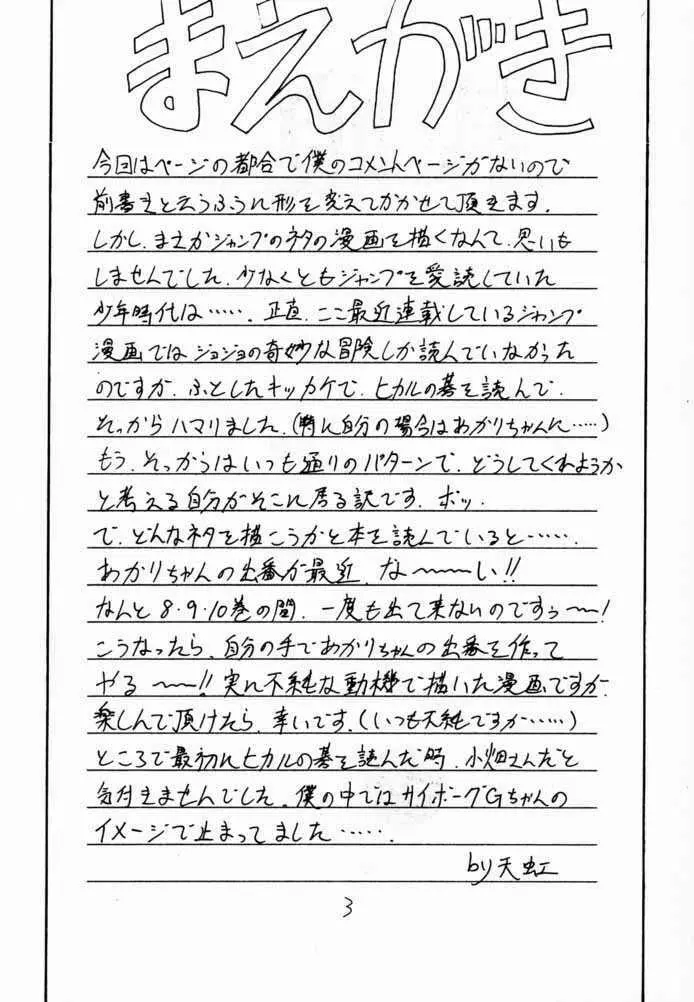 まえがき
今回はページの都合で僕のコメントページがないので
前書きと云うふうに形を変えてかかせて頂きます.
しかし.まさかジャンプのネタの漫画を描くなんて.思いも
しませんでした.少なくともジャンプを愛読していた
少年時代は‥‥‥.正直.ここ最近連載しているジャンプ
漫画ではジョジョの奇妙な冒険しか読んでいなかった
のですが.ふとしたキッカケで.ヒカルの碁を読んで.
そっからハマリました.(特に自分の場合はあかりちゃんに‥‥)
もう.そっからはいつも通りのパターンで.どうしてくれようか
と考える自分がそこに居る訳です.ポッ.
で.どんなネタを描こうかと本を読んでいると‥‥‥.
あかりちゃんの出番が最近.な〜〜〜い!!
なんと8・9・10巻の間.一度も出て来ないのですぅ〜!
こうなったら.自分の手であかりちゃんの出番を作って
やる〜〜!!実に不純な動機で描いた漫画ですが.
楽しんで頂けたら.幸いです.(いつも不純ですが‥‥‥)
ところで最初にヒカルの碁を読んだ時.小畑さんだと
気付きませんでした.僕の中ではサイボーグGちゃんの
イメージで止まってました‥‥‥.
by天虹
3